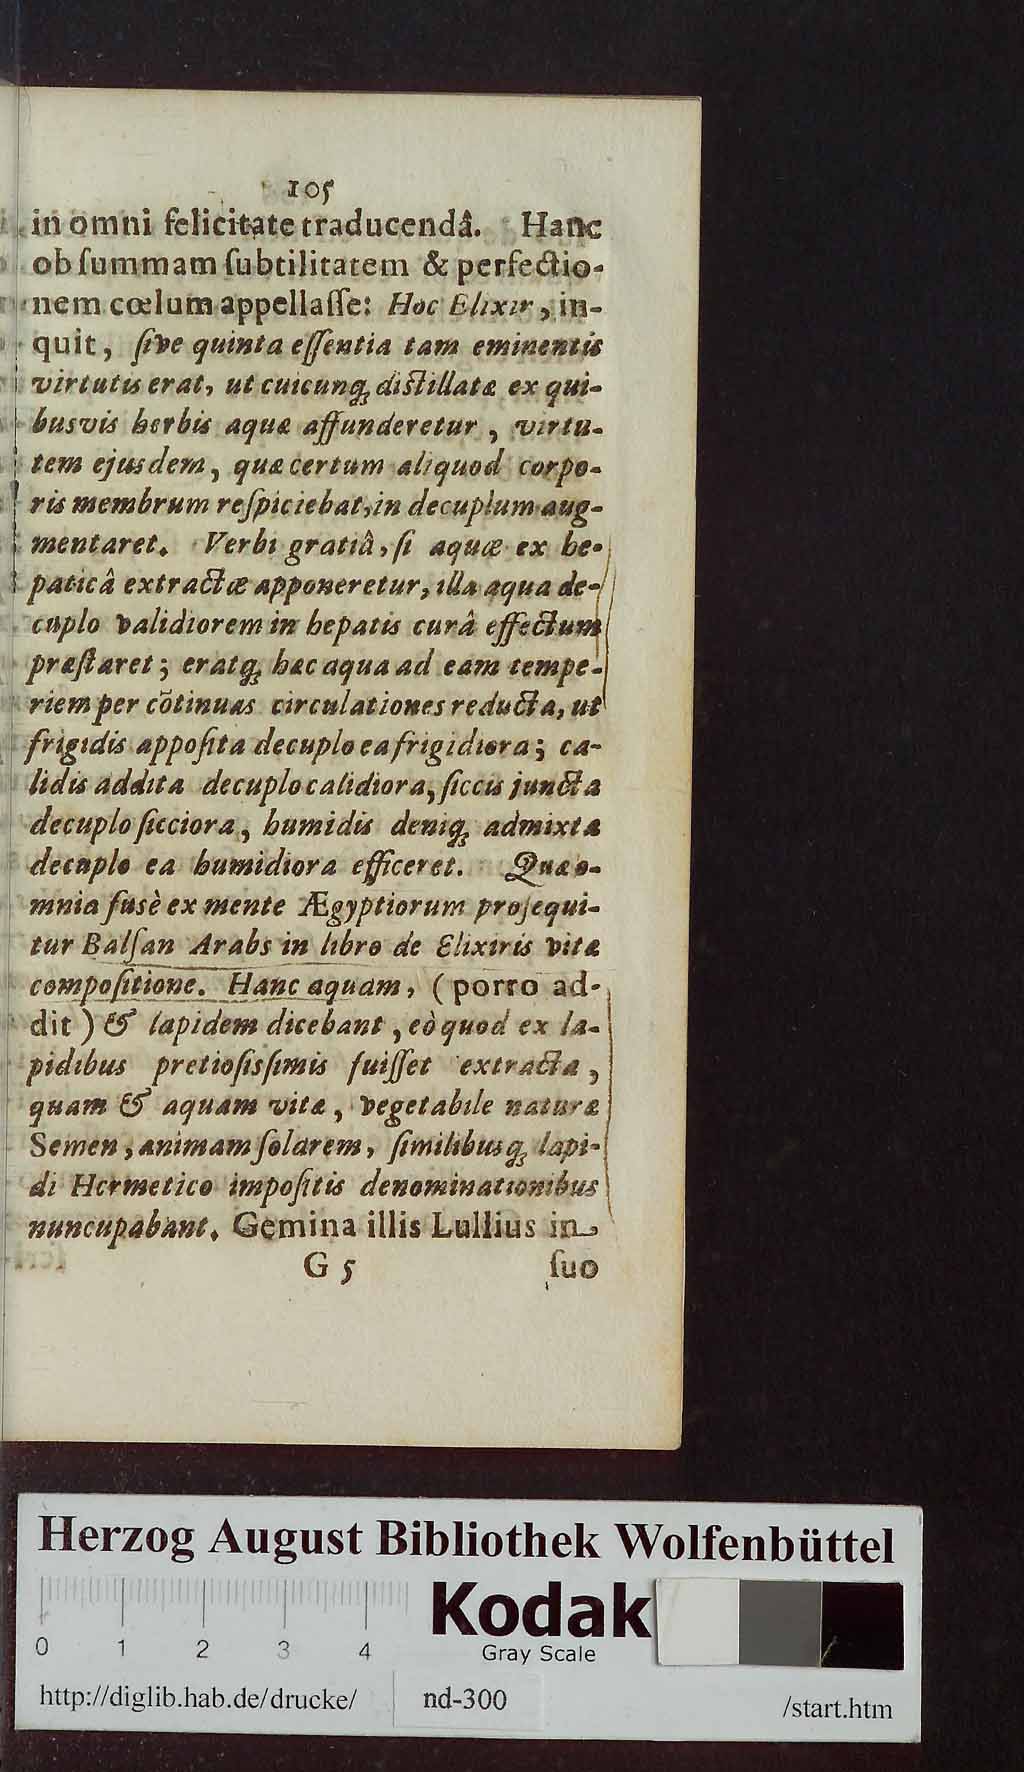 105
in omni felicitate traducendâ. Hanc
ob ſummam ſubtilitatem & perfectio-
nem cœlum appellaſſe: Hoc Elixir, in-
quit, ſive quinta eſſentia tam eminentis
virtutis erat, ut cuicunq; diſtillatæ ex qui-
busvis herbis aquæ affunderetur, virtu-
tem ejusdem, quæ certum aliquod corpo-
ris membrum reſpiciebat, in decuplum aug-
mentaret. Verbi gratiâ, ſi aquæ ex he-
paticâ extractæ apponeretur, illa aqua de-
cuplo validiorem in hepatis curâ effectum
præſtaret; eratq; hæc aqua ad eam tempe-
riem per cõtinuas circulationes reducta, ut
frigidis appoſita decuplo ea frigidiora; ca-
lidis addita decuplo calidiora, ſiccis juncta
decuplo ſicciora, humidis deniq; admixta
decuplo ea humidiora efficeret. Quæ o-
mnia fusè ex mente Ægyptiorum proſequi-
tur Balſan Arabs in libro de Elixiris vitæ
compoſitione. Hanc aquam, (porro ad-
dit) & lapidem dicebant, eò quod ex la-
pidibus pretioſisſimis fuiſſet extracta,
quam & aquam vitæ, vegetabile naturæ
Semen, animam ſolarem, ſimilibusq; lapi-
di Hermetico impoſitis denominationibus
nuncupabant. Gemina illis Lullius in
G 5 ſuo
Herzog August Bibliothek Wolfenbüttel
0 1 2 3 4
Kodak
Gray Scale
http://diglib.hab.de/drucke/ nd-300 /start.htm